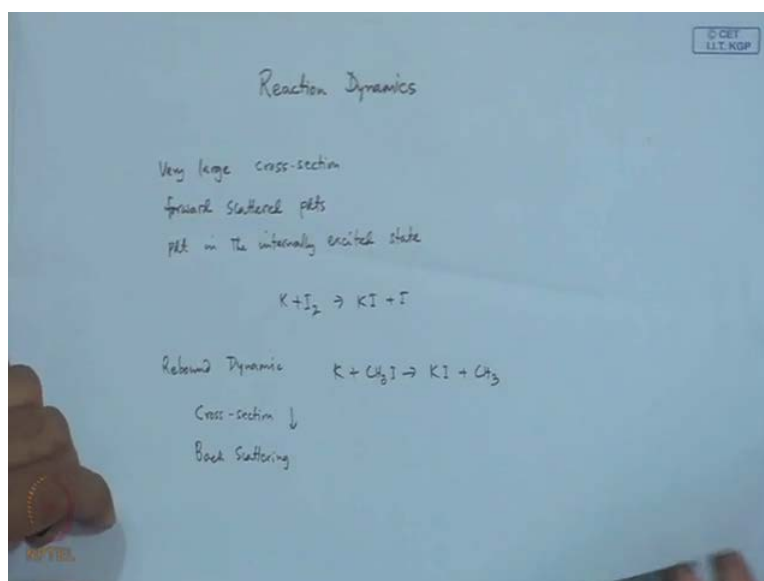 © CET
I.I.T. KGP
Reaction Dynamics
Very large cross-section
forward scattered pdts
pdt in the internally excited state
K + I₂ → KI + I
Rebound Dynamic K + CH₃I → KI + CH₃
Cross-section ↓
Back Scattering
NPTEL